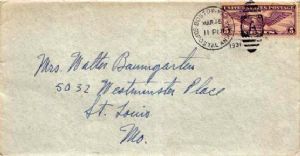 BOSTON
MAR
11 PM
1931
UNITED STATES POSTAGE
5 5
Mrs. Walter Baumgarten
5032 Westminster Place
St. Louis
Mo.